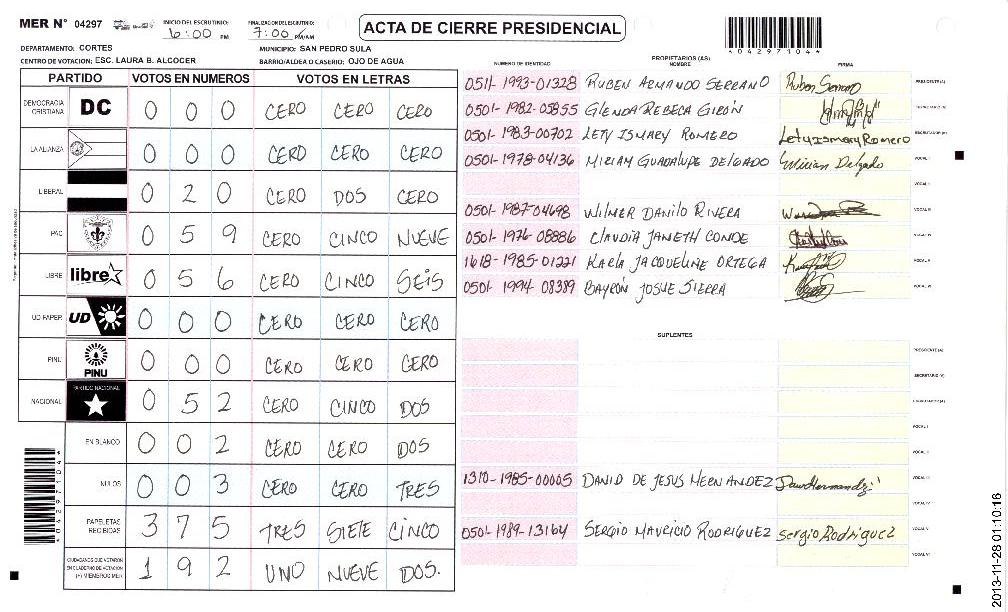 MER N° 04297
INICIO DEL ESCRUTINIO: 6:00 PM
FINALIZACION DEL ESCRUTINIO: 7:00 PM/AM
ACTA DE CIERRE PRESIDENCIAL
404297104
DEPARTAMENTO: CORTES
MUNICIPIO: SAN PEDRO SULA
CENTRO DE VOTACION: ESC. LAURA B. ALCOCER
BARRIO/ALDEA O CASERIO: OJO DE AGUA
PARTIDO VOTOS EN NUMEROS VOTOS EN LETRAS
DEMOCRACIA CRISTIANA DC 0 0 0 CERO CERO CERO
LA ALIANZA 0 0 0 CERO CERO CERO
LIBERAL 0 2 0 CERO DOS CERO
PAC 0 5 9 CERO CINCO NUEVE
LIBRE libre 0 5 6 CERO CINCO SEIS
UD FAPER UD 0 0 0 CERO CERO CERO
PINU PINU 0 0 0 CERO CERO CERO
NACIONAL PARTIDO NACIONAL 0 5 2 CERO CINCO DOS
EN BLANCO 0 0 2 CERO CERO DOS
NULOS 0 0 3 CERO CERO TRES
PAPELETAS RECIBIDAS 3 7 5 TRES SIETE CINCO
CIUDADANOS QUE VOTARON EN CUADERNO DE VOTACION (+) MIEMBROS MER 1 9 2 UNO NUEVE DOS.
PROPIETARIOS (AS)
NUMERO DE IDENTIDAD NOMBRE FIRMA
0511-1993-01328 RUBEN ARMANDO SERRANO Ruben Serrano PRESIDENTE (A)
0501-1982-05855 GLENDA REBECA GIRÓN SECRETARIO (A)
0501-1983-00702 LETY ISMARY ROMERO Lety Ismary Romero ESCRUTADOR (A)
0501-1978-04136 MIRIAM GUADALUPE DELGADO Miriam Delgado VOCAL I
VOCAL II
0501-1987-04698 WILMER DANILO RIVERA VOCAL III
0501-1976-08886 CLAUDIA JANETH CONDE VOCAL IV
1618-1985-01221 KARLA JACQUELINE ORTEGA VOCAL V
0501-1994-08389 BAYRON JOSUE SIERRA VOCAL VI
SUPLENTES
PRESIDENTE (A)
SECRETARIO (A)
ESCRUTADOR (A)
VOCAL I
VOCAL II
1310-1985-00005 DAVID DE JESUS HERNANDEZ VOCAL III
VOCAL IV
0501-1989-13164 SERGIO MAURICIO RODRIGUEZ Sergio Rodriguez VOCAL V
VOCAL VI
404297104
2013-11-28 01:10:16